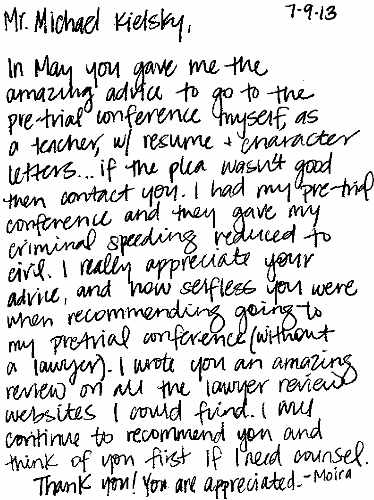 7-9-13
Mr. Michael Kielsky,
In May you gave me the
amazing advice to go to the
pre-trial conference myself, as
a teacher, w/ resume + character
letters... if the plea wasn't good
then contact you. I had my pre-trial
conference and they gave my
criminal speeding reduced to
civil. I really appreciate your
advice, and how selfless you were
when recommending going to
my pretrial conference (without
a lawyer). I wrote you an amazing
review on all the lawyer review
websites I could find. I will
continue to recommend you and
think of you first if I need counsel.
Thank you! You are appreciated. -Moira